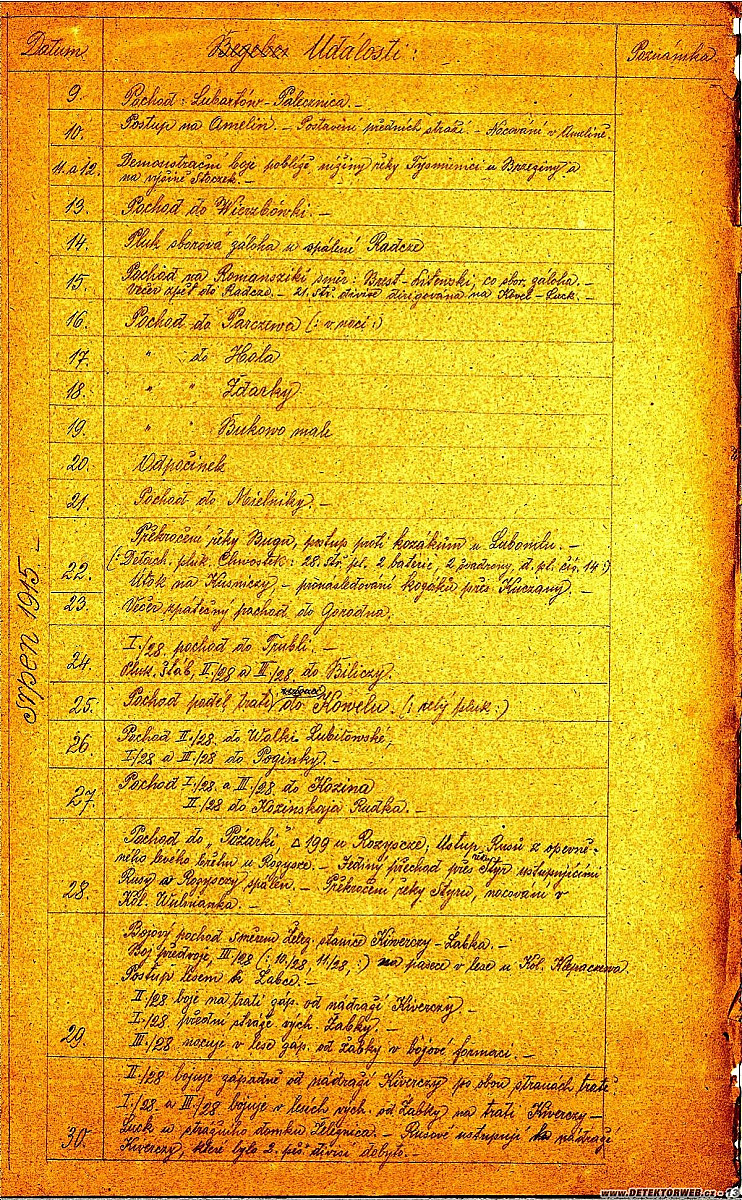 Datum Události: Poznámka
srpen 1915 –
9. Pochod: Lubartów – Palecznica. –
10. Postup na Amelin. – Postavení předních stráží. – Nocování v Amelině.
11. a 12. Demonstrační boje poblíže nižiny řeky Tysmienici u Brzeziny a
na výšině Stoczek. –
13. Pochod do Wierzbówki. –
14. Pluk sborová záloha u spálené Radcze
15. Pochod na směr: Brest-Litewski, co sbor. záloha. –
Večer zpět do Radcze. – 21. stř. divise dirigována na Kovel – Luck. –
16. Pochod do Parczewa (: v noci :)
17. " do Hola
18. " " Żdarky
19. " " Bukowo male
20. Odpočinek
21. Pochod do Mielniky. –
22. Překročení řeky Bugu, postup proti kozákům u Lubomlu. –
(: Detach. pluk. Chwostek: 28. stř. pl. 2 baterie, 2 švadrony, d. pl. čís. 14 :)
Útok na Kusniczy, – pronásledování kozáků přes Kuczany. –
23. Večer zpáteční pochod do Gorodna.
24. I./28. pochod do Trubli. –
Pluk. štáb, II./28 a III./28. do Biliczy.
25. Pochod podél trati do Kowelu. (: celý pluk :)
26. Pochod II./28. do Walki Lubitowské,
I./28 a III./28 do Poginky. –
27. Pochod I./28. a III./28 do Kozina
II./28 do Kozinskaja Rudka. –
28. Pochod do „Pożarki," △ 199 u Rozyscze, Ústup Rusů z opevně-
ného levého břehu u Rozysce. – Jediný přechod přes řeku Styr ustupujícími
Rusy u Rozysczy spálen. – Překročení řeky Styru, nocování v
Kol. Wulmanka. –
29. Bojový pochod směrem želez. stanice Kiwerczy – Żabka. –
Boj předvoje, III./28 (: 10/28, 11/28, :) na pasece v lese u Kol. Klepaczewa.
Postup lesem k Żabce. –
II./28 boje na trati záp. od nádraží Kiwerczy. –
I./28. přední stráže vých. Żabky. –
III./28 nocuje v lese záp. od Żabky v bojové formaci. –
30. II./28 bojuje západně od nádraží Kiwerczy po obou stranách trati.
I./28 a III./28 bojuje v lesích vých. od Żabky na trati Kiwerczy –
Luck u strážního domku Zeleznica. – Rusové ustupují k nádraží
Kiwerczy, které bylo 2. pěš. divisí dobyto. –
www.DETEKTORWEB.cz